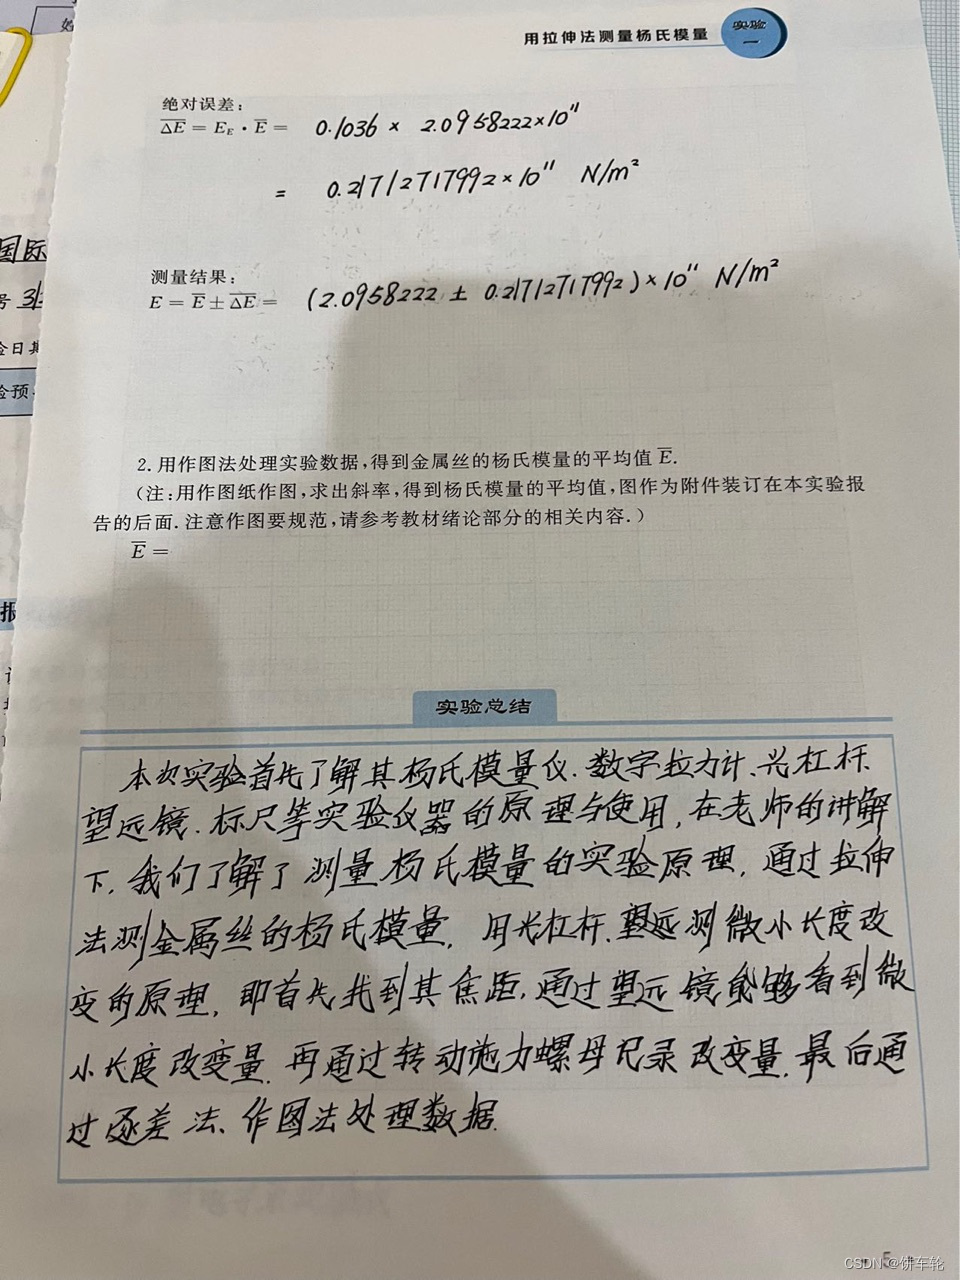 用拉伸法测量杨氏模量
实验一
绝对误差:
ΔE = E_E · E = 0.1036 × 2.0958222×10¹¹
= 0.21712717992×10¹¹ N/m²
国际
测量结果:
号 31
E = E ± ΔE = (2.0958222 ± 0.21712717992)×10¹¹ N/m²
验日期
验预
2. 用作图法处理实验数据,得到金属丝的杨氏模量的平均值 E.
(注:用作图纸作图,求出斜率,得到杨氏模量的平均值,图作为附件装订在本实验报
告的后面.注意作图要规范,请参考教材绪论部分的相关内容.)
E =
报
实验总结
本次实验首先了解其杨氏模量仪.数字拉力计、光杠杆、
望远镜.标尺等实验仪器的原理与使用,在老师的讲解
下,我们了解了测量杨氏模量的实验原理,通过拉伸
法测金属丝的杨氏模量,用光杠杆.望远测微小长度改
变的原理,即首先找到其焦距,通过望远镜能够看到微
小长度改变量.再通过转动施力螺母记录改变量.最后通
过逐差法、作图法处理数据.
5
CSDN @饼车轮